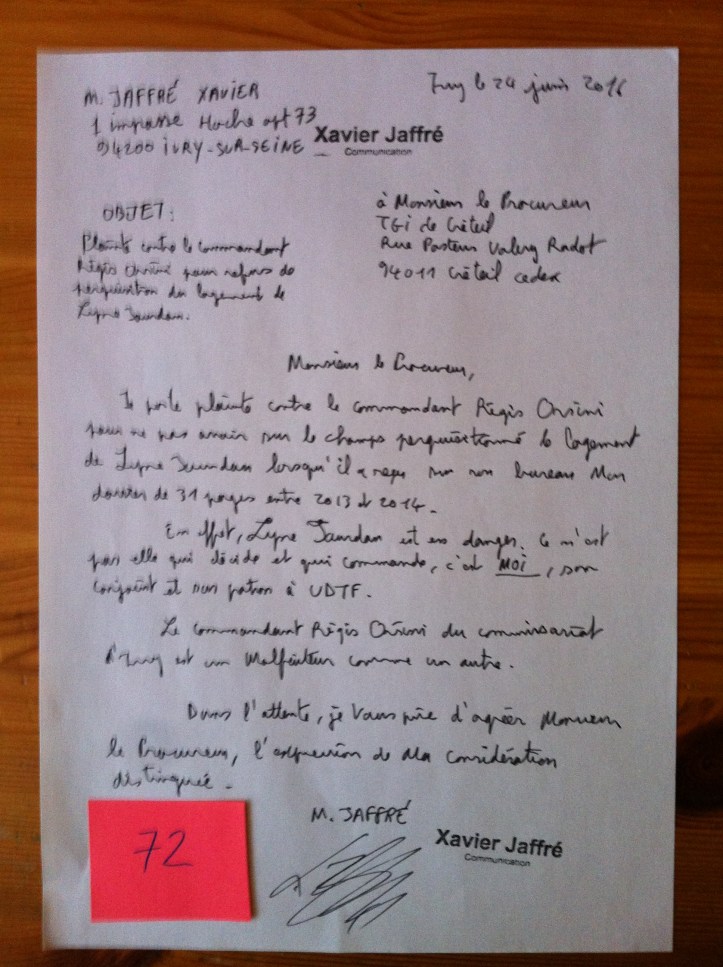 M. JAFFRÉ XAVIER
1 impasse Hoche apt 73
94200 IVRY-SUR-SEINE
Xavier Jaffré
Communication
Ivry le 24 juin 2016
à Monsieur le Procureur
TGI de Créteil
Rue Pasteur Valery Radot
94011 Créteil cedex
OBJET:
Plainte contre le commandant
Régis Orsini pour refus de
perquisition du logement de
Lyne Jourdan.
Monsieur le Procureur,
Je porte plainte contre le commandant Régis Orsini
pour ne pas avoir sur le champs perquisitionné le logement
de Lyne Jourdan lorsqu'il a reçu sur son bureau Mon
dossier de 31 pages entre 2013 et 2014.
En effet, Lyne Jourdan est en danger. Ce n'est
pas elle qui décide et qui commande, c'est MOI, son
conjoint et son patron à UDTF.
Le commandant Régis Orsini du commissariat
d'Ivry est un Malfaiteur comme un autre.
Dans l'attente, je Vous prie d'agréer Monsieur
le Procureur, l'expression de Ma considération
distinguée.
M. JAFFRÉ
Xavier Jaffré
Communication
72